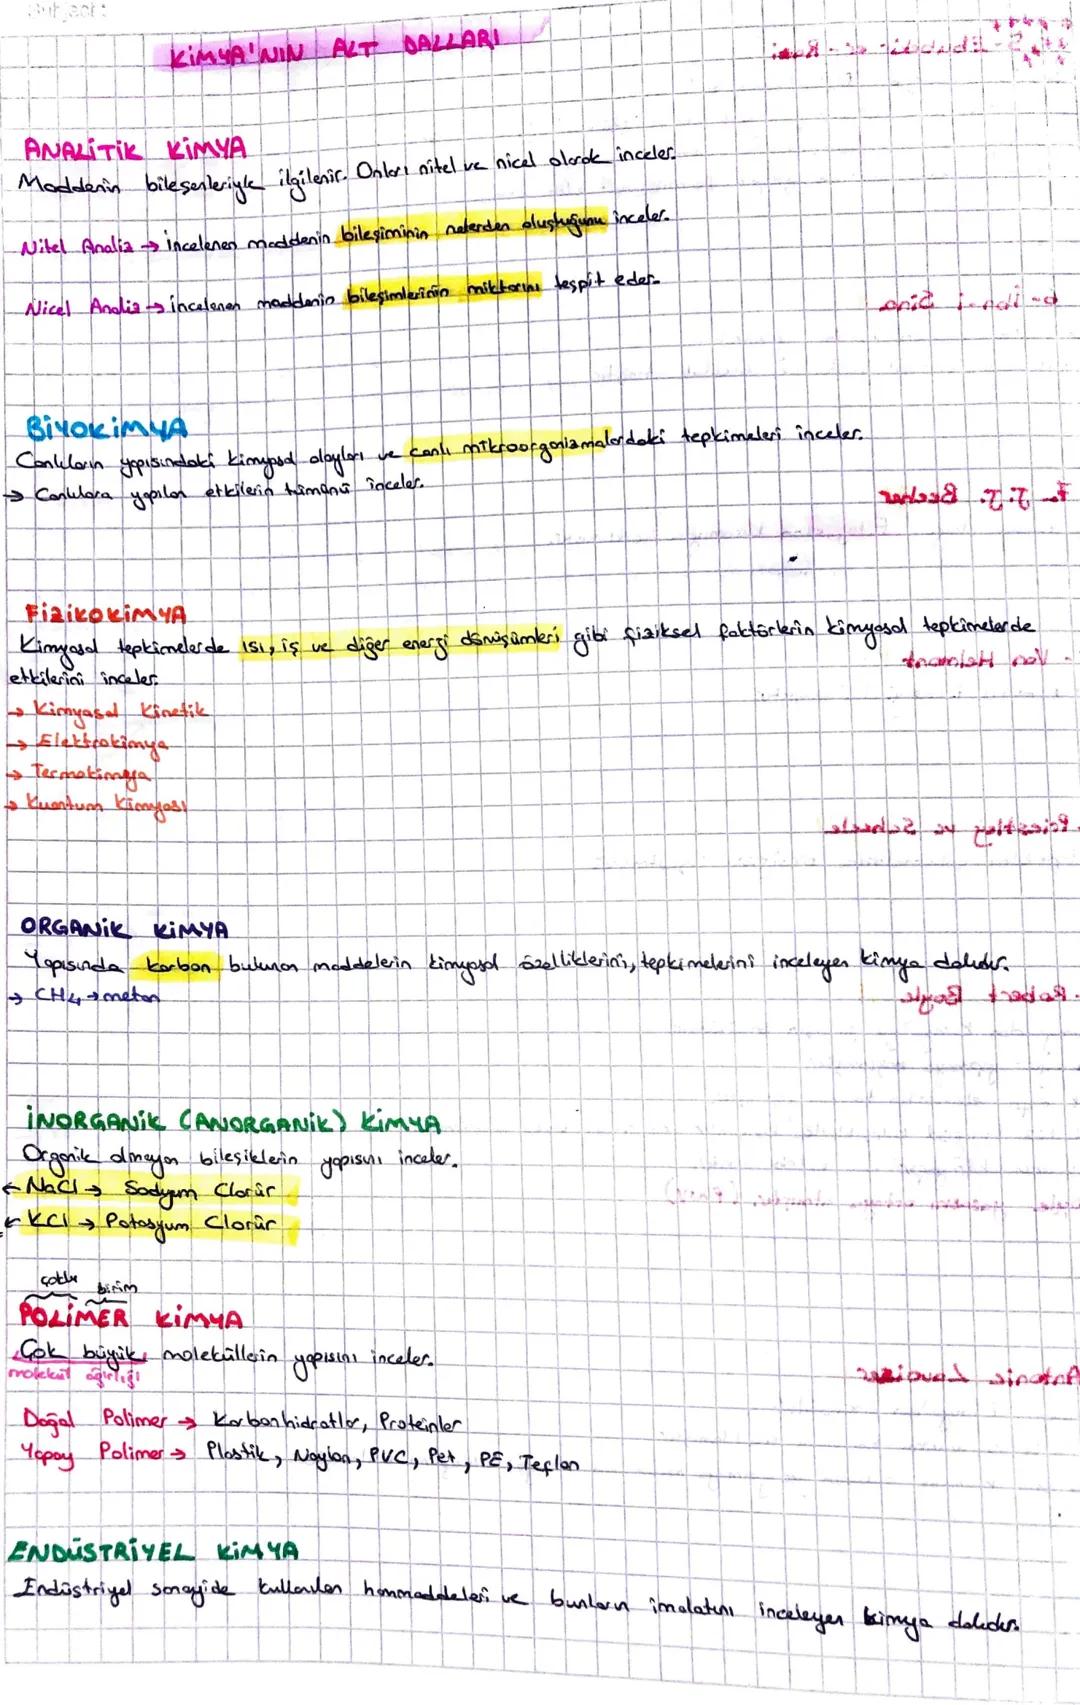 KİMYA'NIN ALT DALLARI
ANALİTİK KİMYA
Maddenin bileşenleriyle ilgilenir. Onları nitel ve nicel olarak inceler.
Nitel Analiz → İncelenen maddenin bileşiminin nelerden oluştuğunu inceler.
Nicel Analiz → incelenen maddenin bileşimlerinin miktarını tespit eder.
BİYOKİMYA
Canlıların yapısındaki kimyasal olayları ve canlı mikroorganizmalardaki tepkimeleri inceler.
→ Canlılara yapılan etkilerin tümünü inceler.
FİZİKOKİMYA
Kimyasal tepkimelerde ısı, iş ve diğer enerji dönüşümleri gibi fiziksel faktörlerin kimyasal tepkimelerde
etkilerini inceler.
→ Kimyasal Kinetik
→ Elektrokimya
→ Termokimya
→ Kuantum Kimyası
ORGANİK KİMYA
Yapısında karbon bulunan maddelerin kimyasal özelliklerini, tepkimelerini inceleyen kimya dalıdır.
→ CH4 → metan
İNORGANİK (ANORGANİK) KİMYA
Organik olmayan bileşiklerin yapısını inceler.
← NaCl → Sodyum Clorür
← KCl → Potasyum Clorür
çoklu birim
POLİMER KİMYA
Çok büyük moleküllerin yapısını inceler.
molekül ağırlığı
Doğal Polimer → Karbonhidratlar, Proteinler
Yapay Polimer → Plastik, Naylon, PVC, Pet, PE, Teflon
ENDÜSTRİYEL KİMYA
Endüstriyel sanayide kullanılan hammaddeleri ve bunların imalatını inceleyen kimya dalıdır.